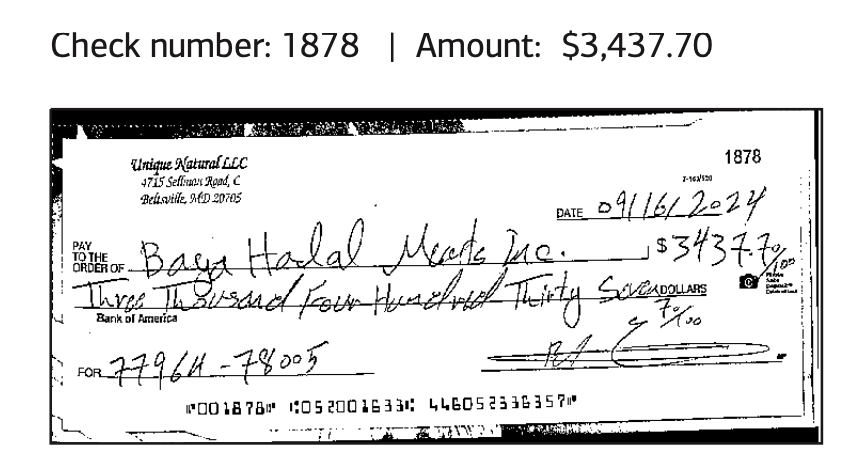 Check number: 1878 | Amount: $3,437.70
Unique Natural LLC
4715 Sellman Road, C
Beltsville, MD 20705
1878
7-163/520
DATE 09/16/2024
PAY TO THE ORDER OF Baya Halal Meats Inc. $3437.70/100
Three Thousand Four Hundred Thirty Seven DOLLARS
70/100
Bank of America
FOR 77964-78005
⑈001878⑈ ⑆052001633⑆ 446052336357⑈